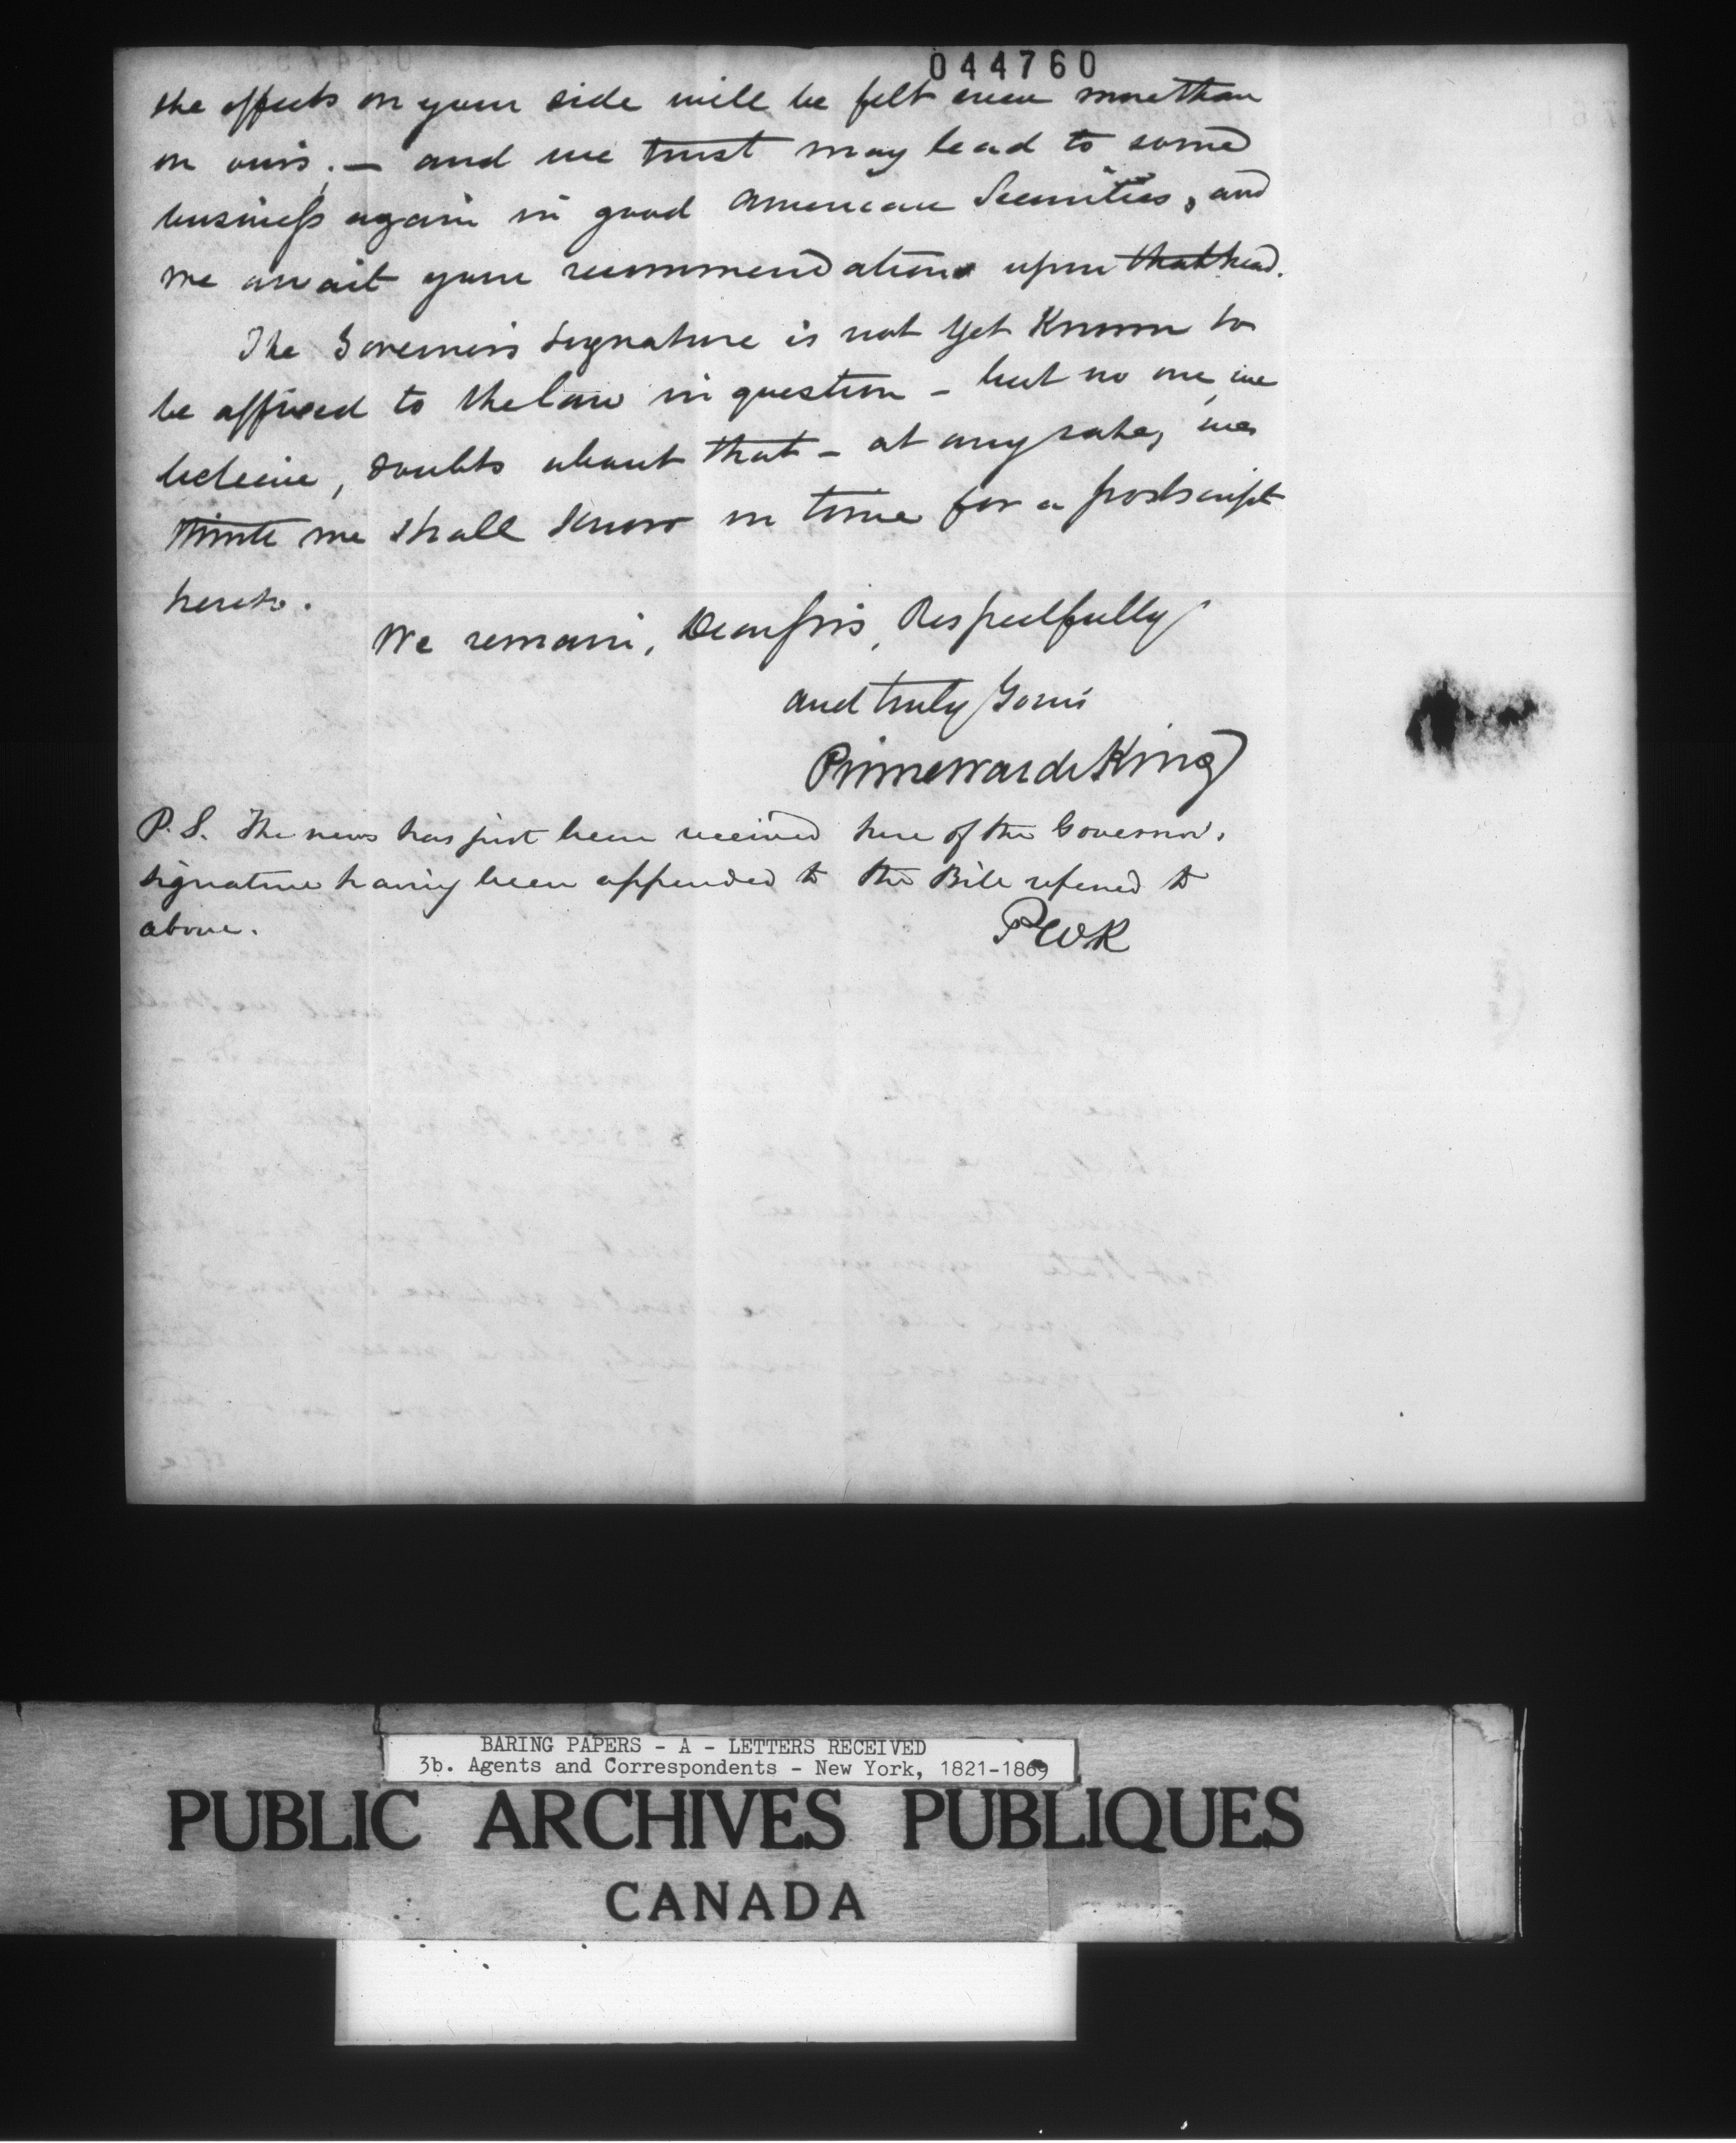 044760
the effects on your side will be felt even more than
on ours. — and we trust may lead to some
business again in good American Securities, and
we await your recommendations upon that head.
The Governors signature is not yet Known to
be affixed to the law in question - but no one, we
believe, doubts about that - at any rate, we
think we shall know in time for a postscript
hereto.
We remain, Dear Sirs, Respectfully
and truly Yours
Prime Ward & King
P.S. The news has just been received here of the Governor's
signature having been appended to the Bill referred to
above.
PW&K
BARING PAPERS - A - LETTERS RECEIVED
3b. Agents and Correspondents - New York, 1821-1869
PUBLIC ARCHIVES PUBLIQUES
CANADA